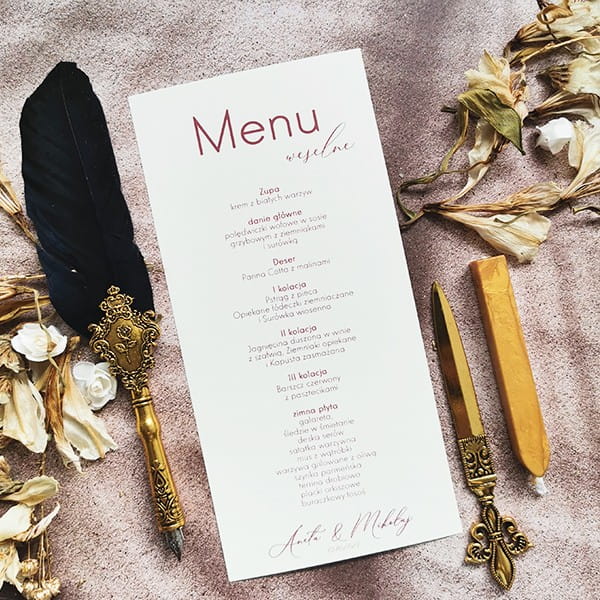 Menu
weselne
Zupa
krem z białych warzyw
danie główne
polędwiczki wołowe w sosie
grzybowym z ziemniakami
i surówką
Deser
Panna Cotta z malinami
I kolacja
Pstrąg z pieca
Opiekane łódeczki ziemniaczane
i Surówka wiosenna
II kolacja
Jagnięcina duszona w winie
z szałwią, Ziemniaki opiekane
i Kapusta zasmażana
III kolacja
Barszcz czerwony
z pasztecikami
zimna płyta
galareta,
śledzie w śmietanie
deska serów
sałatka warzywna
mus z wątróbki
warzywa grilowane z oliwą
szynka parmeńska
terrina drobiowa
placki orkiszowe
buraczkowy łosoś
Anita & Mikołaj